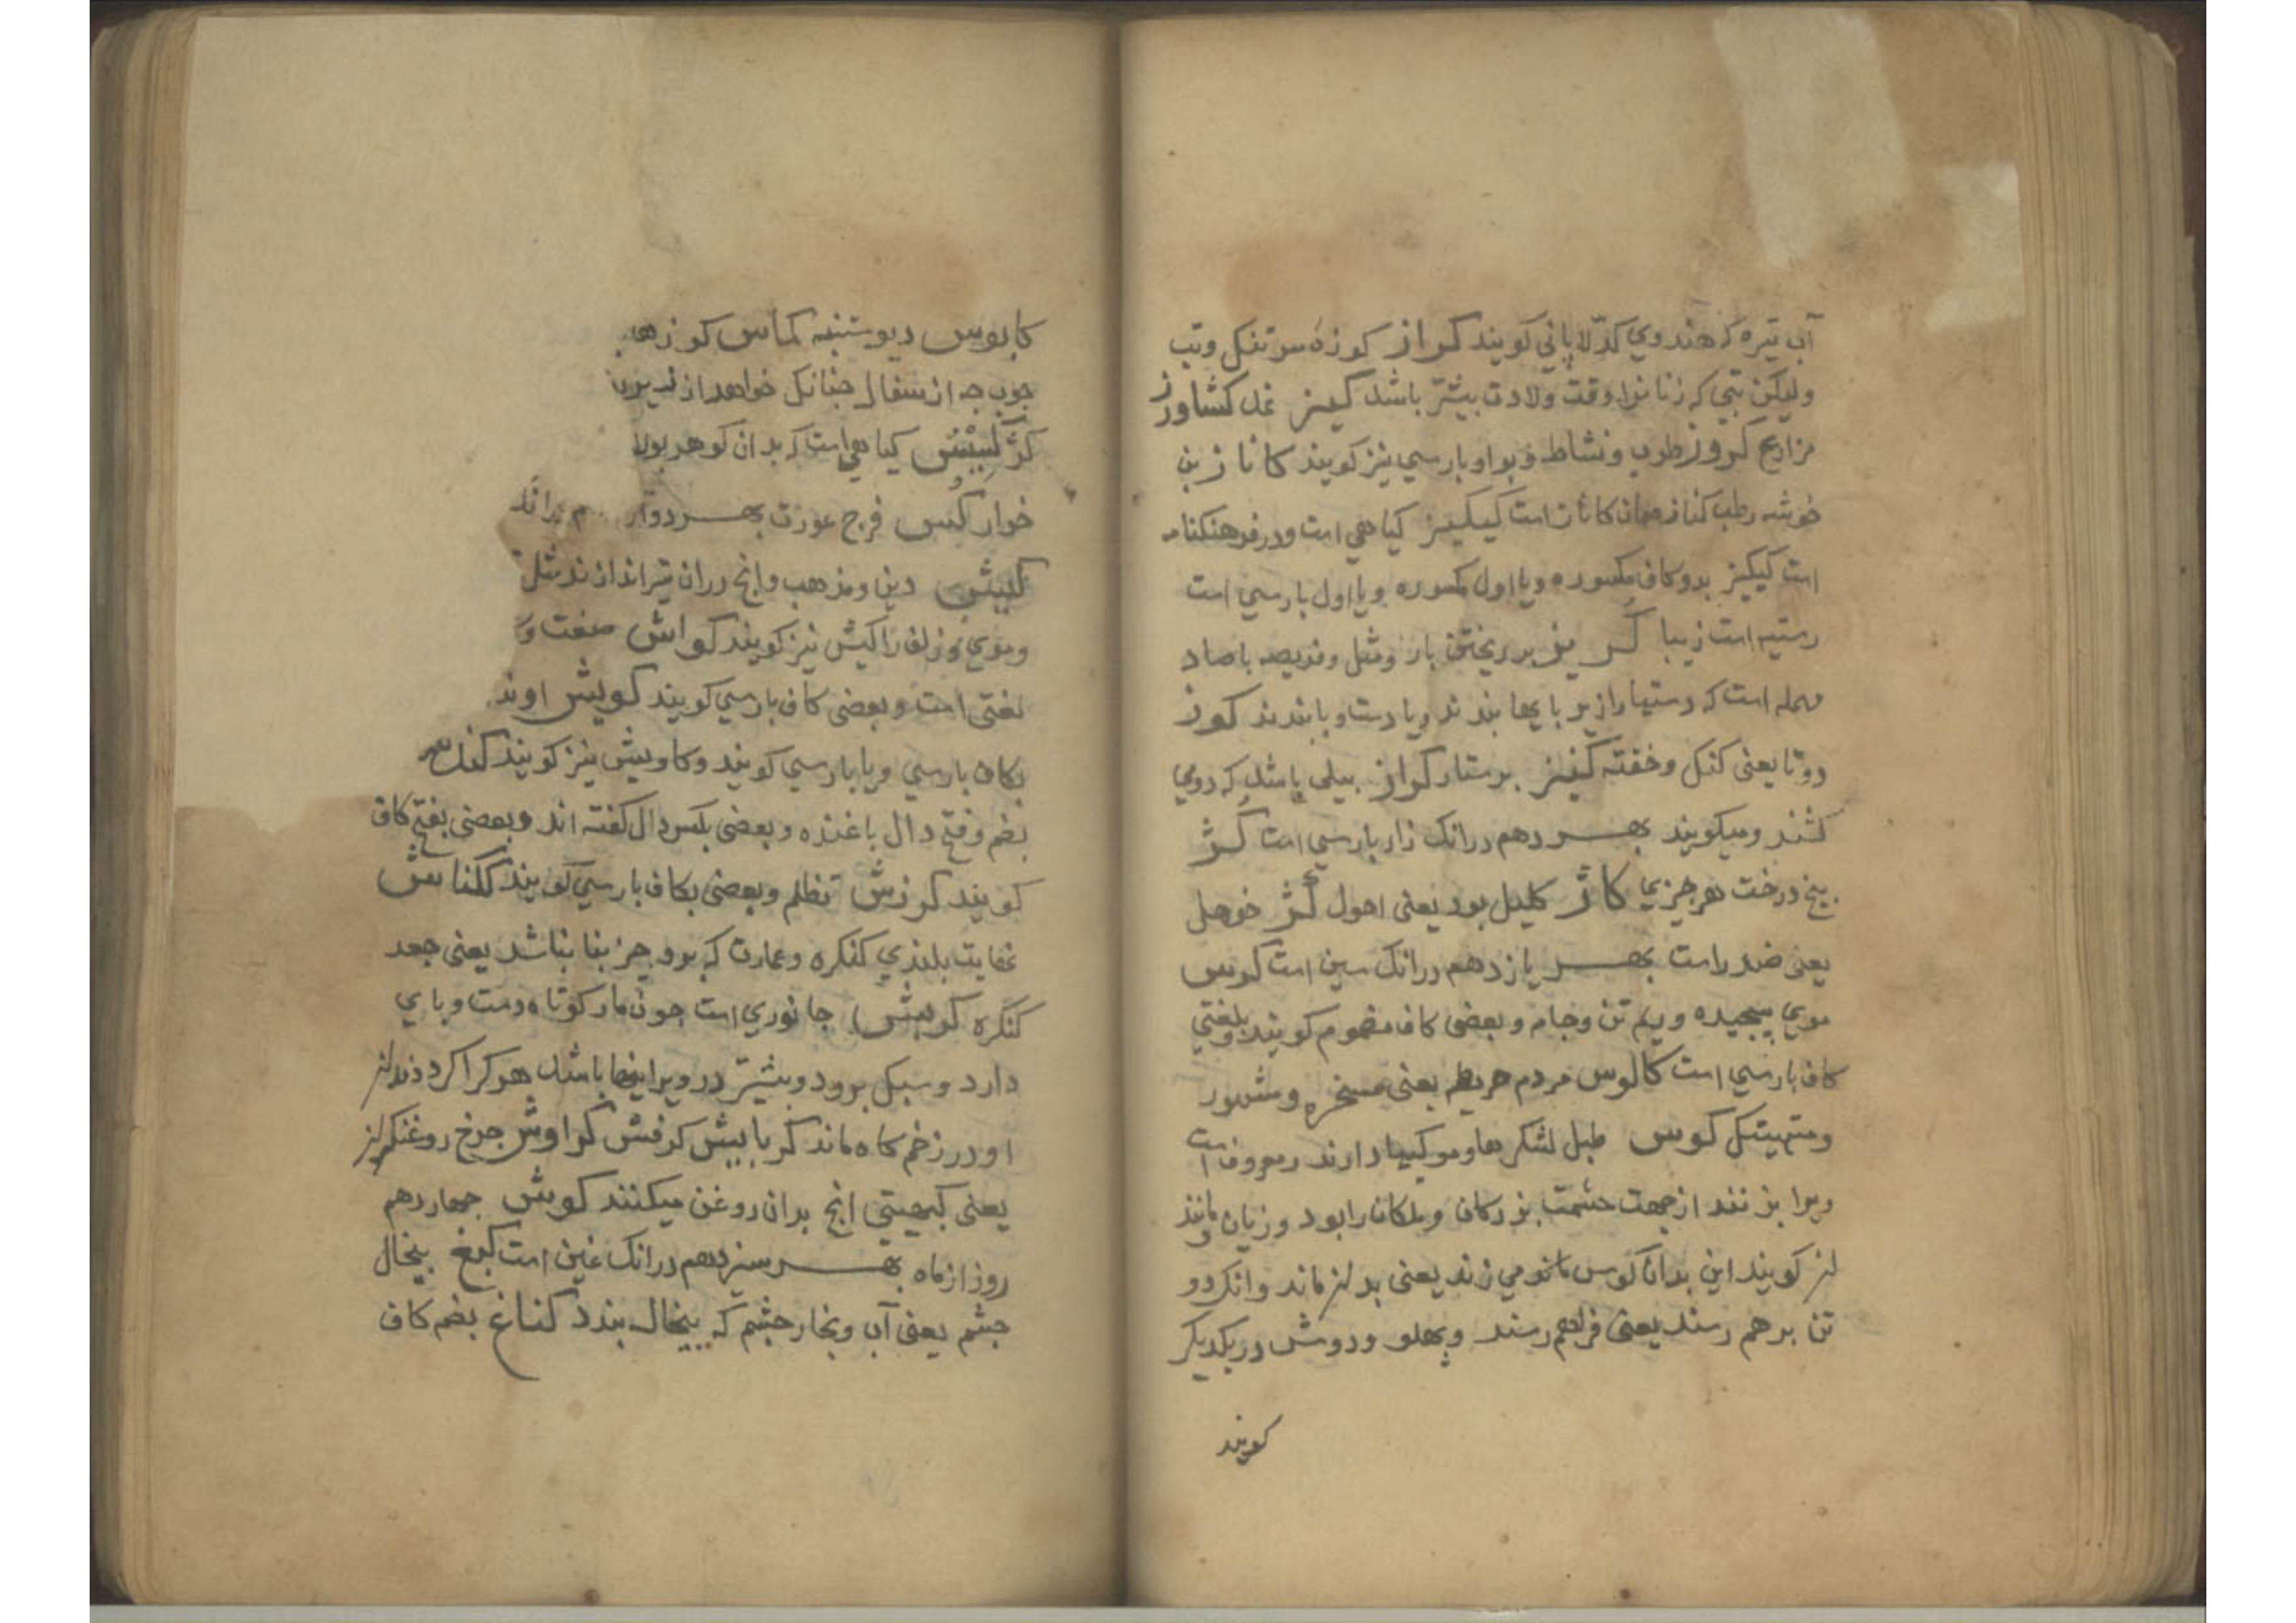 آب تیره که هندوي کدّلا پاني کویند کراز کوزهٔ سرتنك وتب
ولیکن تبي که زنانرا وقت ولادت بیشتر باشد کمیز غد کشاورز
مزارع کروز طرب ونشاط وبواو بارسي نیز کویند کاناز بن
خوشه رطب کناز همان کاناز است کیکیز کیاهي است ودر فرهنکنامه
است کیکیز بدو کاف مکسوره ویا اول مکسوره ویا اول بارسي است
رستیه است زیبا بر ریختن باز ومثل ونریصه باصاد
مهمله است که دستها را زیر بایها بندند ویا دست وبا بندند کوز
دوتا یعنی کنك وخفته کنیز برستار کراز بیلی باشد که دومي
کشند ومیکویند بهر دهم درانك زاء بارسي است کژ
بیخ درخت هر جیزي کاژ کلیك بود یعنی احول کژ خوهل
یعنی ضد راست بهر یازدهم درانك سین است کرس
موي پیچیده وریم تن وجامه وبعضی کاف مضموم کویند وبلغتي
کاف بارسي است کالوس مردم خربط یعنی مسخره ومشهور
ومتهیتك کوس طبل لشکرها وموکبها دارند ومعروف است
وبرا بزنند از جهت حشمت بزرکان وملکان را بود وزیان ومانند
لنز کویند این بدان کوس مانو می زند یعنی بدلنز ماند وانك دو
تن برهم رسند یعنی فراهم رسند وپهلو ودوش در یکدیکر
کویند
کابوس دیو ستنبه کماس کوزهء
جوب جه از سفال جنانك خواهد از
کژ کبیبس کیاهی است که بدان کوهر بولا
خوار کس فرج عورت بهر دواز
کیش دین ومذهب وانج دران تیر اندازند مثل
وموي وزلف را کیش نیز کویند کواش صفت و
لغتی است وبعضی کاف بارسي کویند کویش اوند
بکاف بارسي ویا بارسي کویند وکاویش نیز کویند
بضم وفتح دال باغنده وبعضی بکسر دال کفته اند وبعضی بفتح کاف
کویند کرزش تظلم وبعضی بکاف بارسي کویند
غایت بلندي کنکره وعمارت که برو جز بنا بناشد یعنی جعد
کنکره کربش جانوري است جون مار کوتاه دست وباي
دارد وسبك برود وبیشتر در ویرانیها باشد هر کرا کزد دندانز
او در زخم کاه ماند کرباییش کرفش کراوش جرخ روغنکر
یعنی کهیتي انج بدان روغن میکنند کوش جهاردهم
روز از ماه بهر سیزدهم درانك غین است کیغ بیخال
جشم یعنی آب وبخار جشم که بیخال بندد کناغ بضم کاف